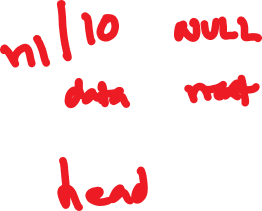 n1/10 NULL
data next
head